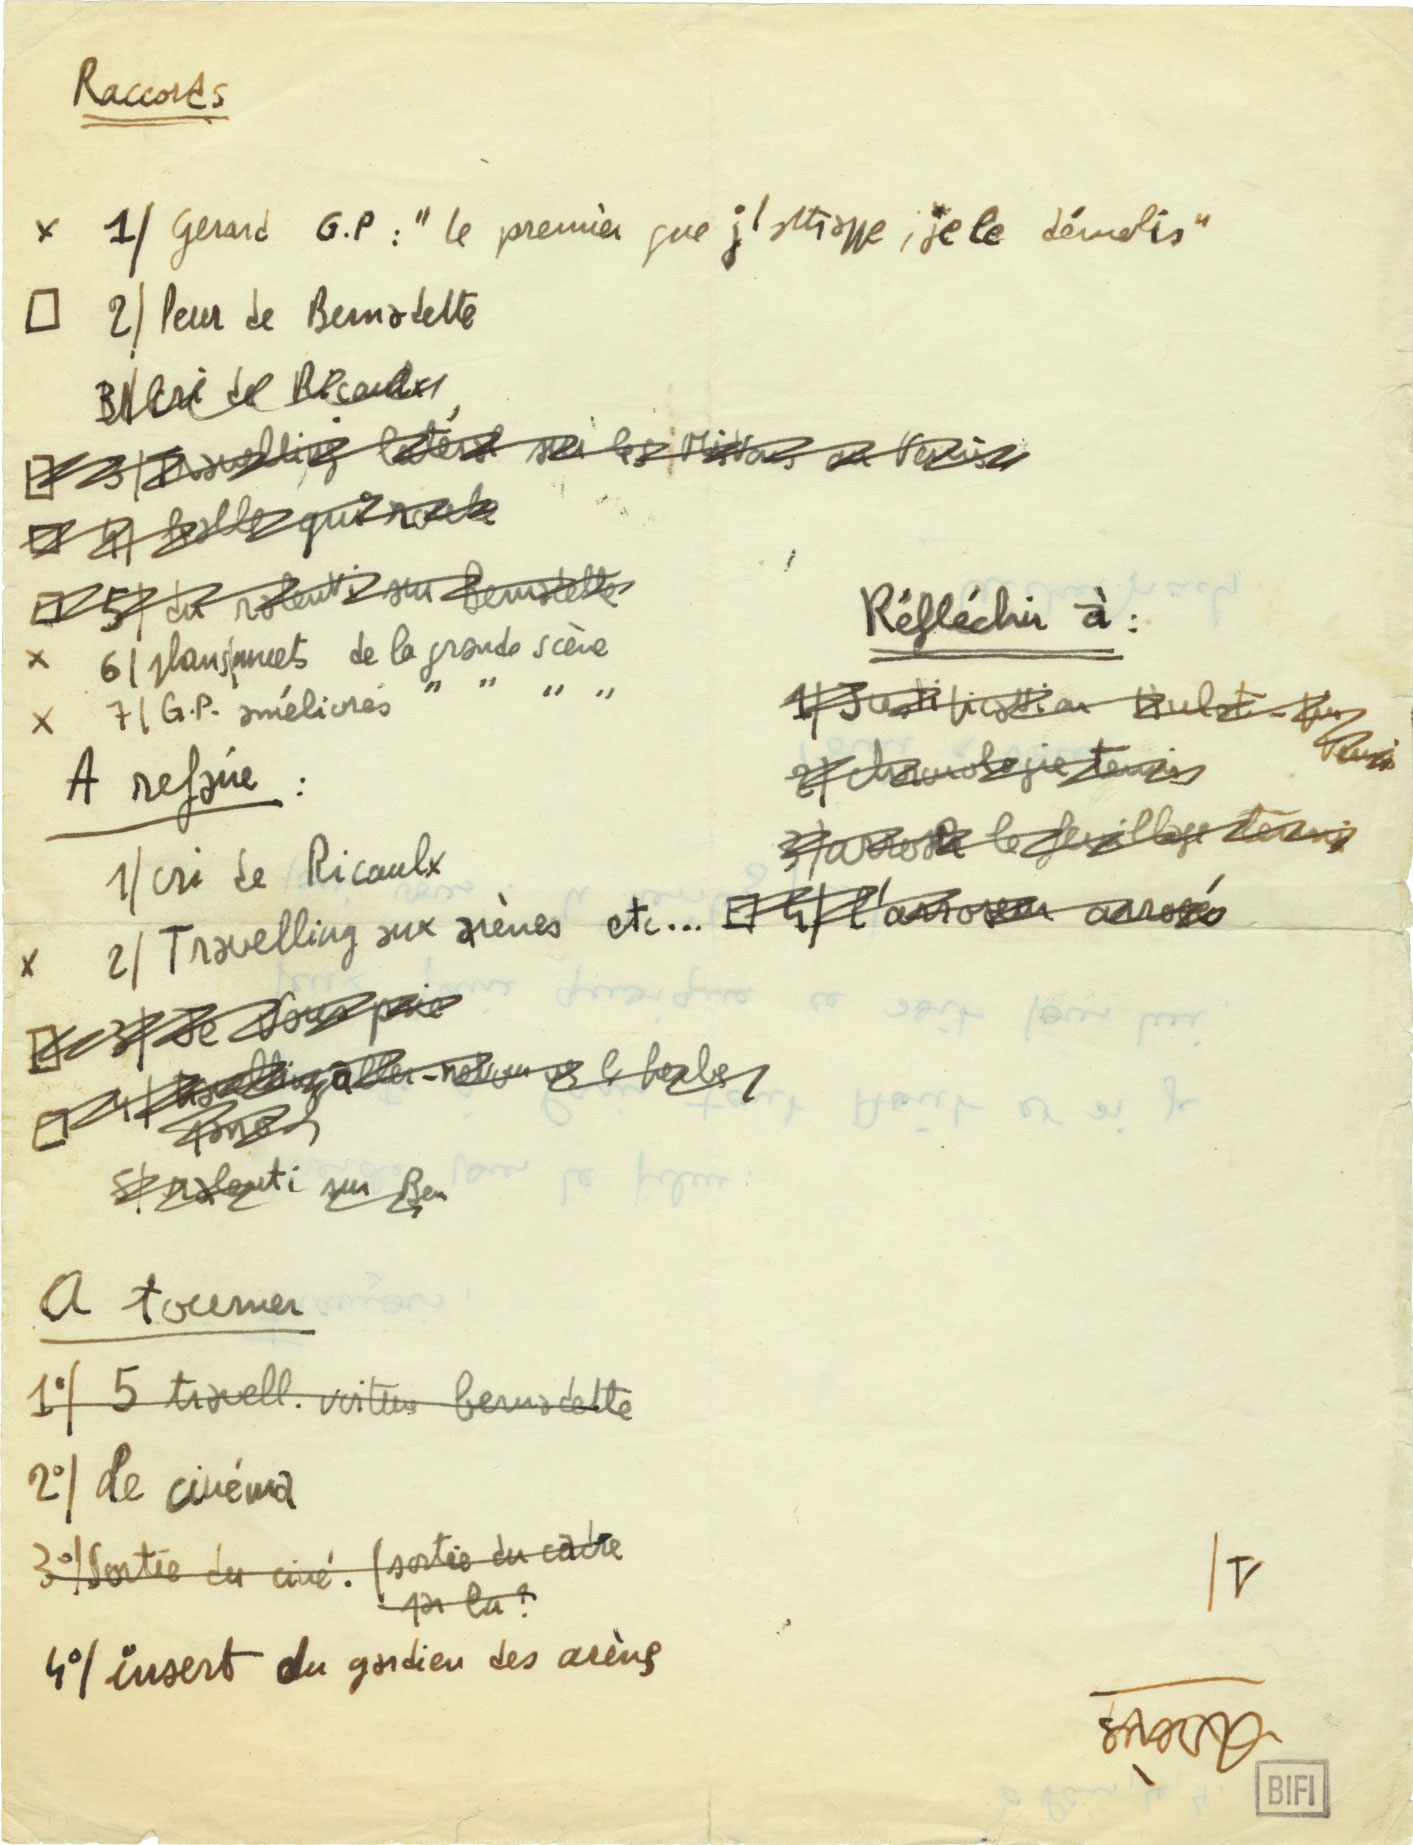 Raccords
x 1/ Gerard G.P : "le premier que j'attrappe, je le démolis"
2/ Peur de Bernadette
3/ Cri de Ricaulx
3/ travelling latéral sur les Mistons au tennis
4/ balle qui roule
5/ du ralenti sur bernadette
x 6/ plans muets de la grande scène
x 7/ G.P. améliorés " " " "
A refaire :
1/ cri de Ricaulx
x 2/ Travelling aux arènes etc...
3/ Je vous prie
4/ travelling aller-retour
5/ ralenti sur Ber
A tourner
1°/ 5 travell. bernadette
2°/ le cinéma
3°/ Sortie du ciné. (sortie du cadre
par la ?
4°/ insert du gardien des arènes
Réfléchir à :
1/ Justification
2/ chronologie tennis
3/ arrosa le feuillage tennis
4/ l'arroseur arrosé
1/
BIFI